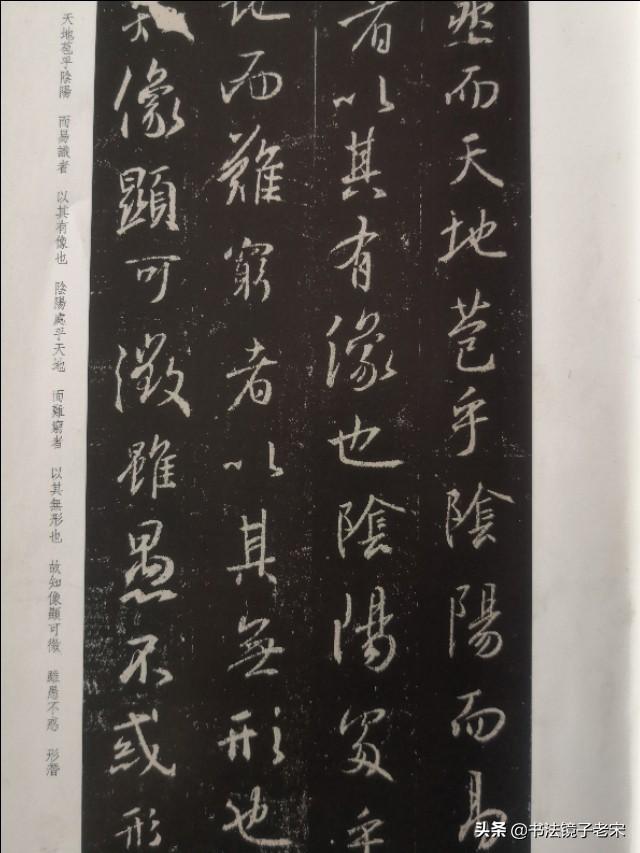 然而天地苞乎陰陽而易
者以其有像也陰陽處乎
地而難窮者以其無形也
知像顯可徵雖愚不惑形
天地苞乎陰陽 而易識者 以其有像也 陰陽處乎天地 而難窮者 以其無形也 故知像顯可徵 雖愚不惑 形潛
头条 @书法镜子老宋